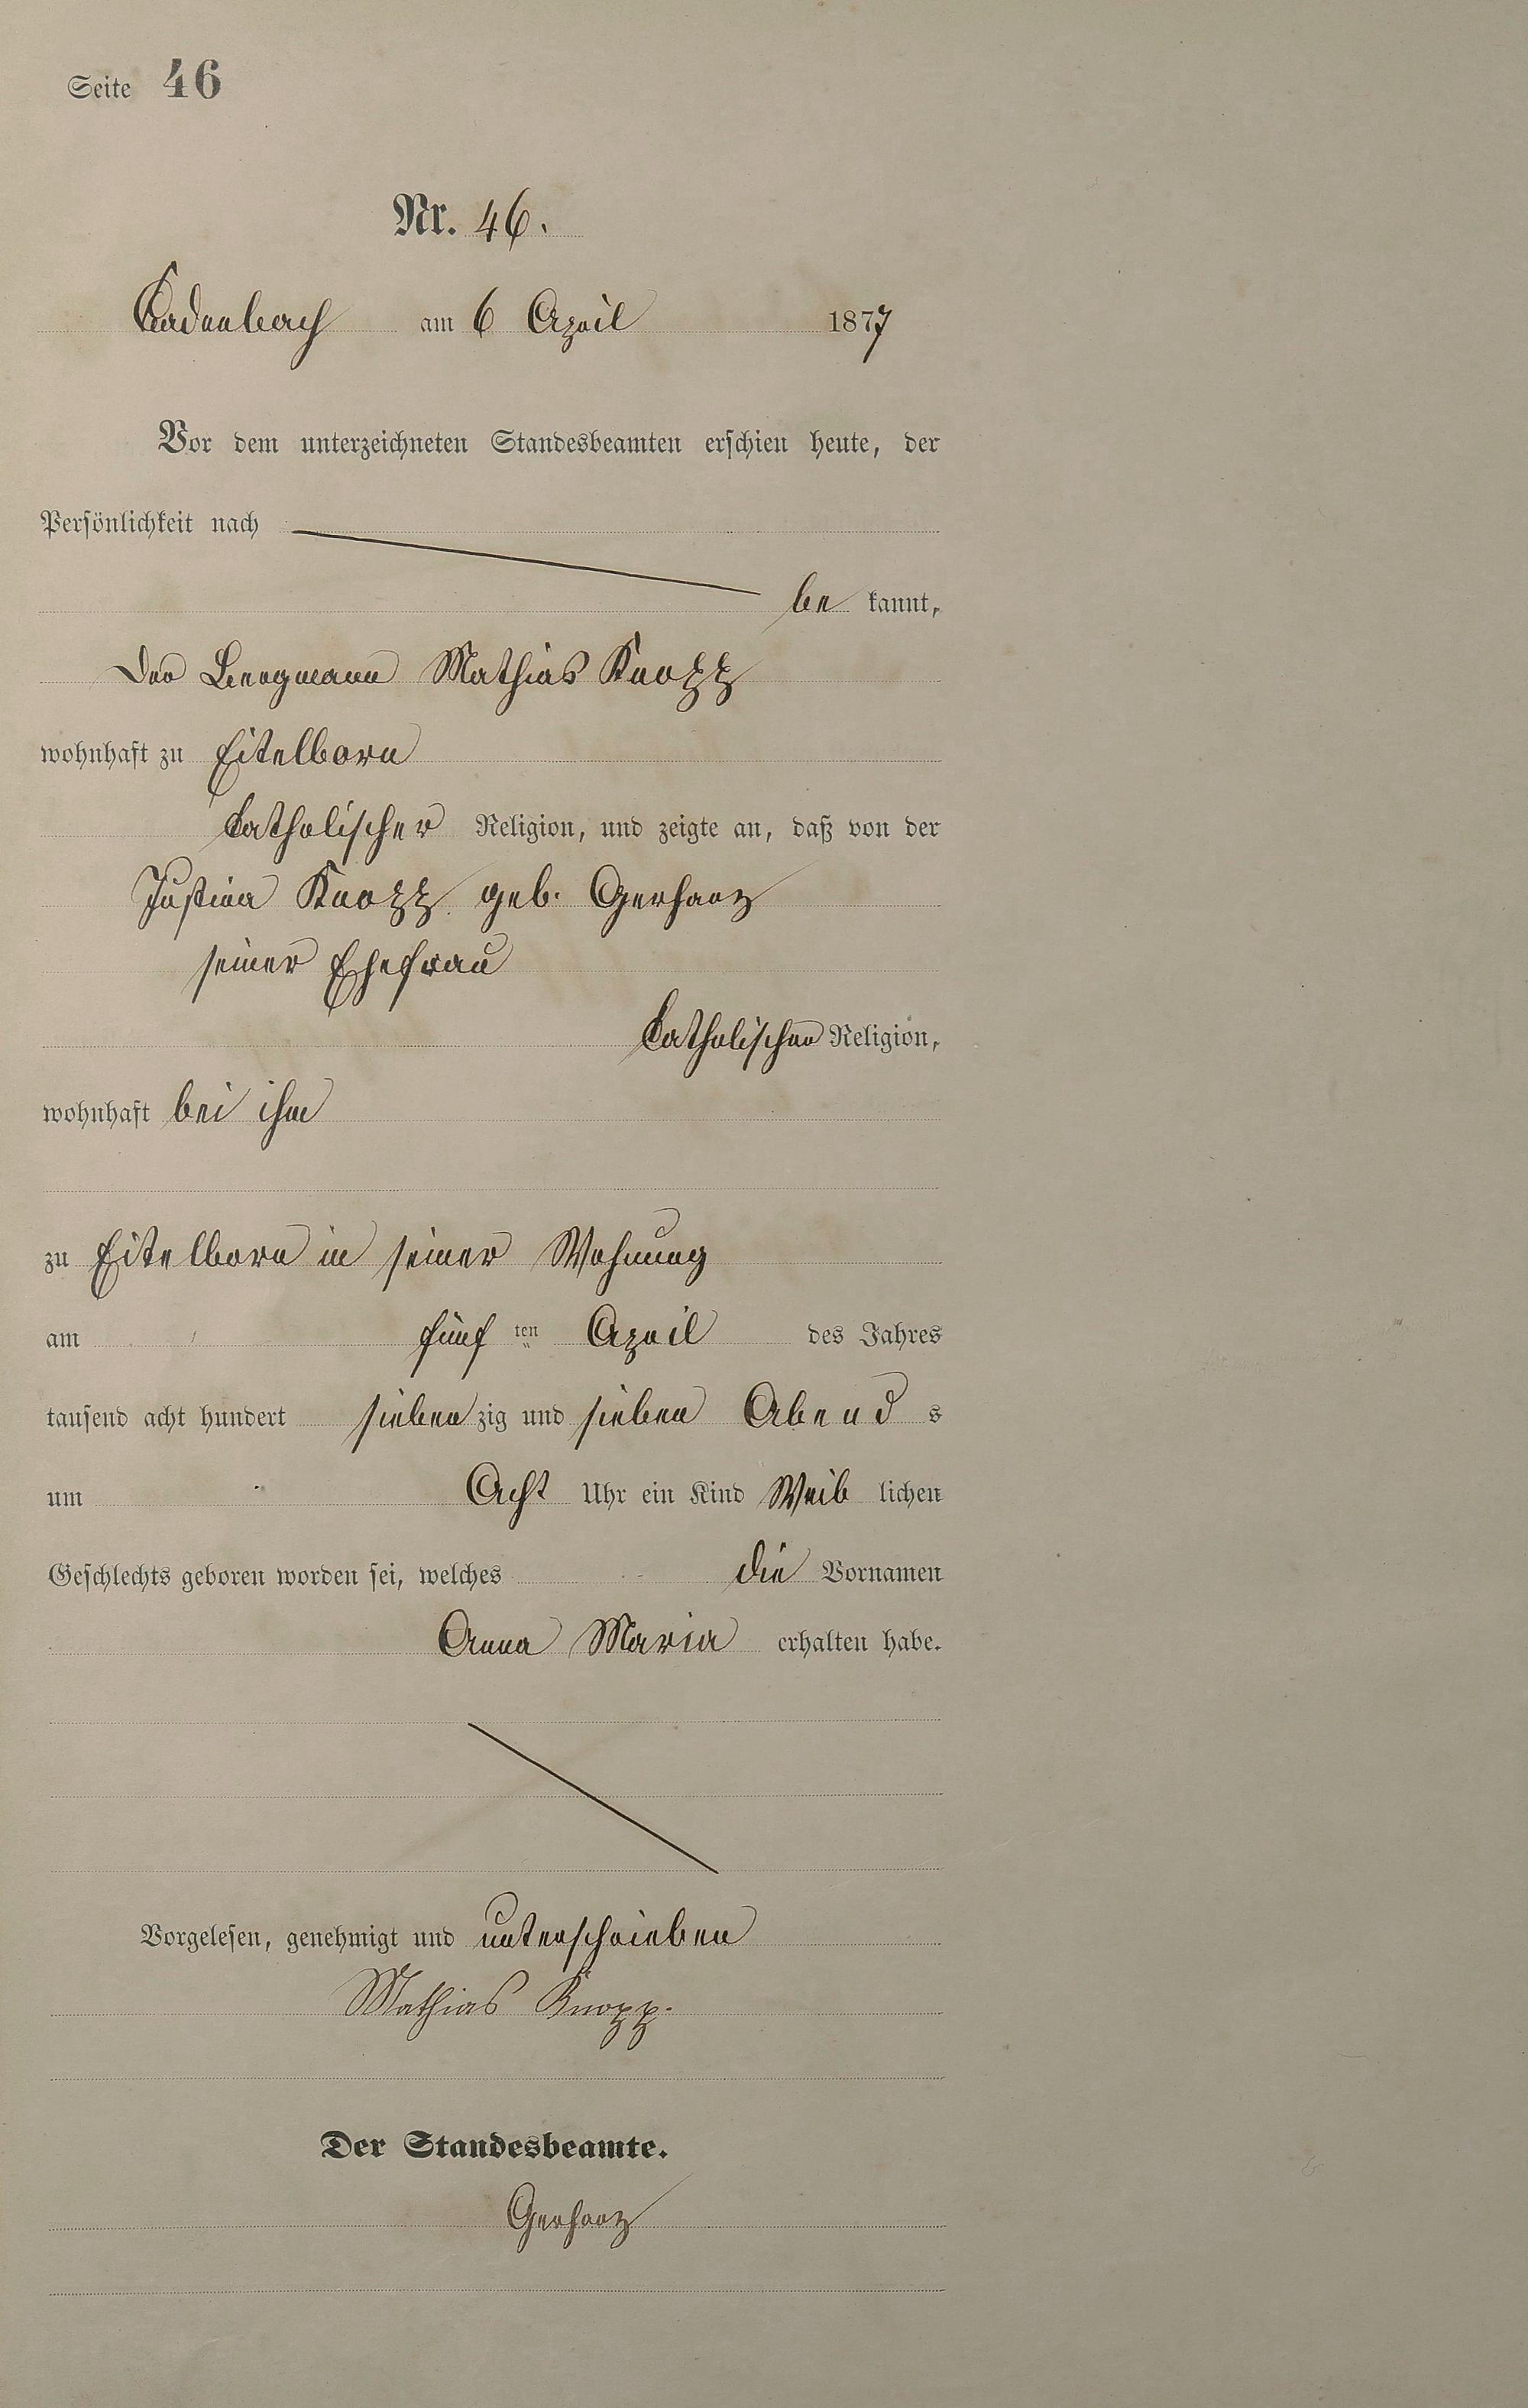 Seite 46
Nr. 46.
Cadenbach am 6 April 1877
Vor dem unterzeichneten Standesbeamten erschien heute, der
Persönlichkeit nach
be kannt,
Der Bergmann Mathias Knopp
wohnhaft zu Eitelborn
Catholischer Religion, und zeigte an, daß von der
Justina Knopp geb. Gerharz
seiner Ehefrau
Catholischer Religion,
wohnhaft bei ihm
zu Eitelborn in seiner Wohnung
am fünf ten April des Jahres
tausend acht hundert sieben zig und sieben Abend s
um Acht Uhr ein Kind Weib lichen
Geschlechts geboren worden sei, welches die Vornamen
Anna Maria erhalten habe.
Vorgelesen, genehmigt und unterschrieben
Mathias Knopp.
Der Standesbeamte.
Gerharz